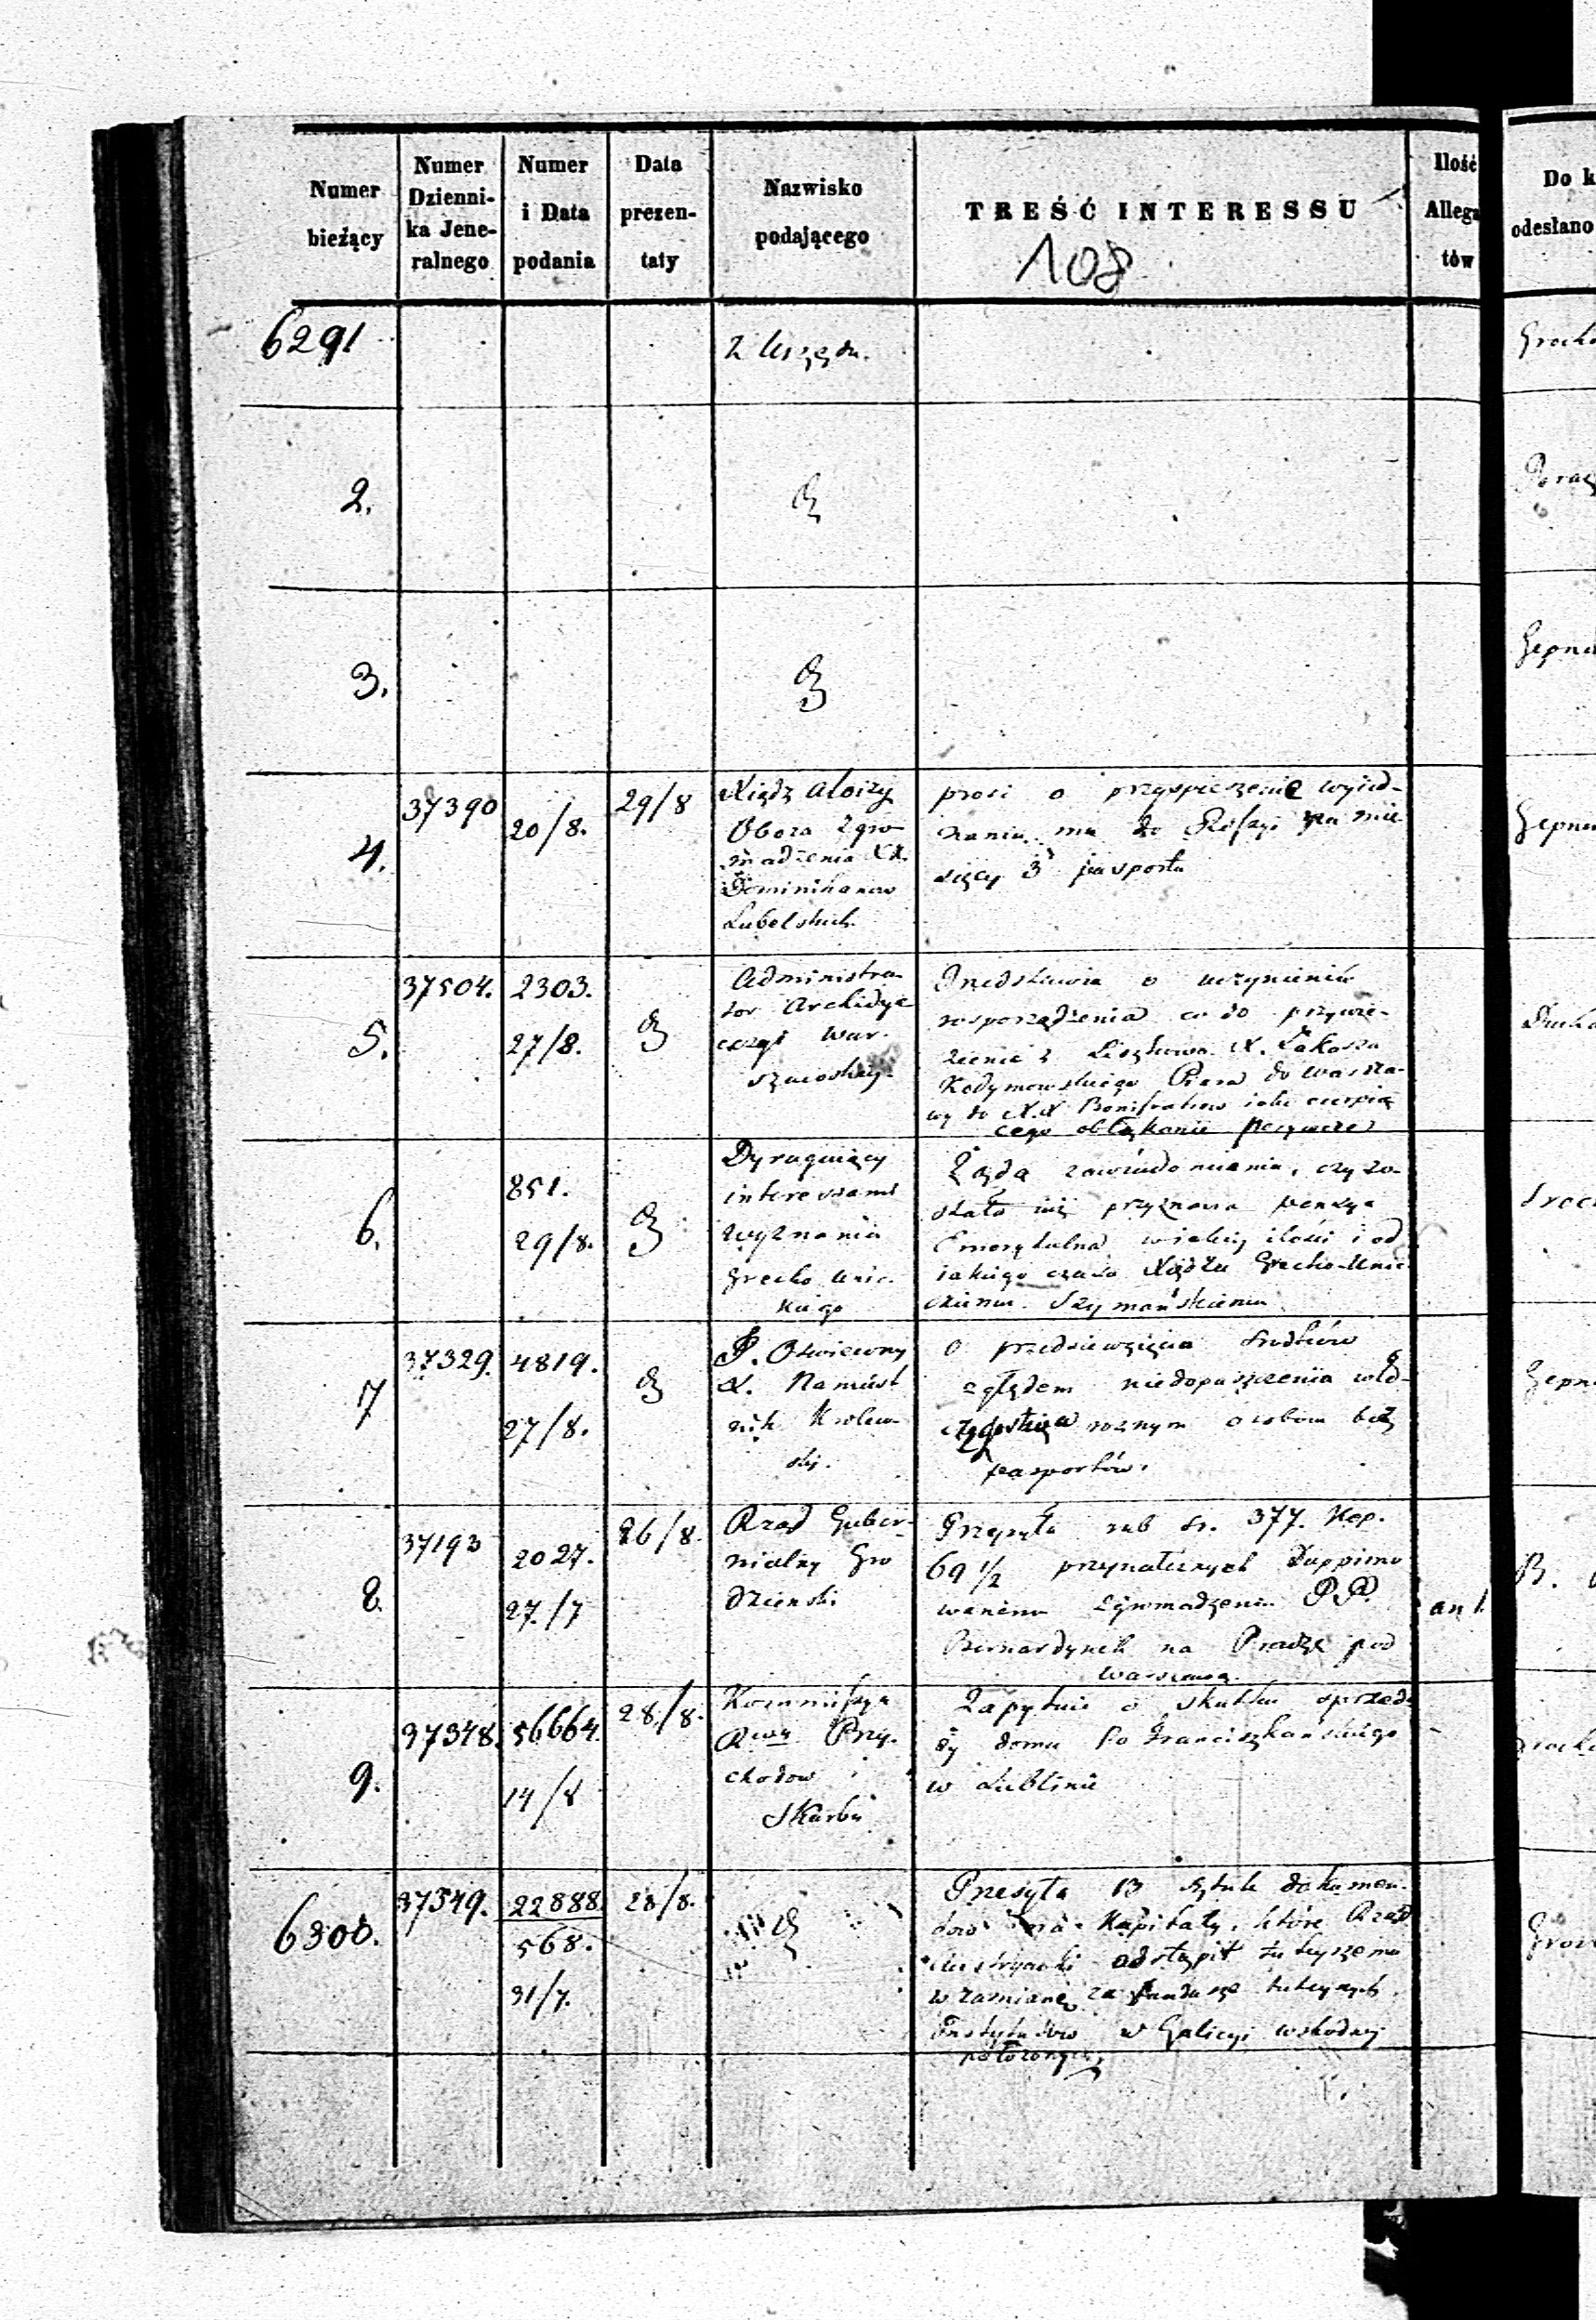 Numer bieżący
Numer Dzienni-ka Jene-ralnego
Numer i Data podania
Data prezen-taty
Nazwisko podającego
TREŚĆ INTERESSU
Ilość Allega tów
Do k
odesłano
108
6291
Z Urzędu.
2.
3.
4.
37390
20/8.
29/8
Xiądz Aloizy
Obora Zgro-
madzenia XX.
Dominikanow
Lubelskich
prosi o przyspieszenie wyied-
nania mu do Rossyi na mie
sięcy 3 pasportu
5.
37504.
2303.
27/8.
Administra-
tor Archidye
cezyi War-
szawskiej.
Przedstawia o uczynienie
rosporządzenia co do przywie-
zienie z X. Łukasza
Piara do Warsza-
wy do XX Bonifratrow iako cierpią
cego obłąkanie
6.
851.
29/8.
Dyrygujący
interessami
wyznania
Grecko Unic-
kiego
Żąda zawiadomienia, czy zo-
stała już przyznana pensya
Emerytalna w iakiej ilości i od
iakiego czasu Xiędzu Grecko-Unic
kiemu Szymańskiemu
7
37329.
4819.
27/8.
X. Namiest
nik Krolew-
ski.
o przedsiewzięcia srodków
względem niedopuszczenia włó-
roznym osobom bez
pasportów.
8.
37193
2027.
27./7
26/8.
Rząd Guber-
nialny Gro
dzienski
Przesyła rub sr. 377. Kop.
69 1/2 przynależnych Suppimo
wanemu Zgromadzeniu PP.
Bernardynek na Pradze pod
Warszawą.
an 1.
9.
37348.
56664.
14/8
28./8.
Kommissya
Rwa Przy-
chodow i
Skarbu
Zapytuie o skutku sprzeda-
ży domu Po Franciszkańskiego
w Lublinie
6300.
37349.
22888.
568.
31/7.
28/8.
Przesyła 13 sztuk dokumen-
tów na Kapitały, które Rząd
Austryacki odstąpił tuteyszemu
w zamianę za fundusze tuteyszych
Instytutów w Galicyi wschodniej
położonych,